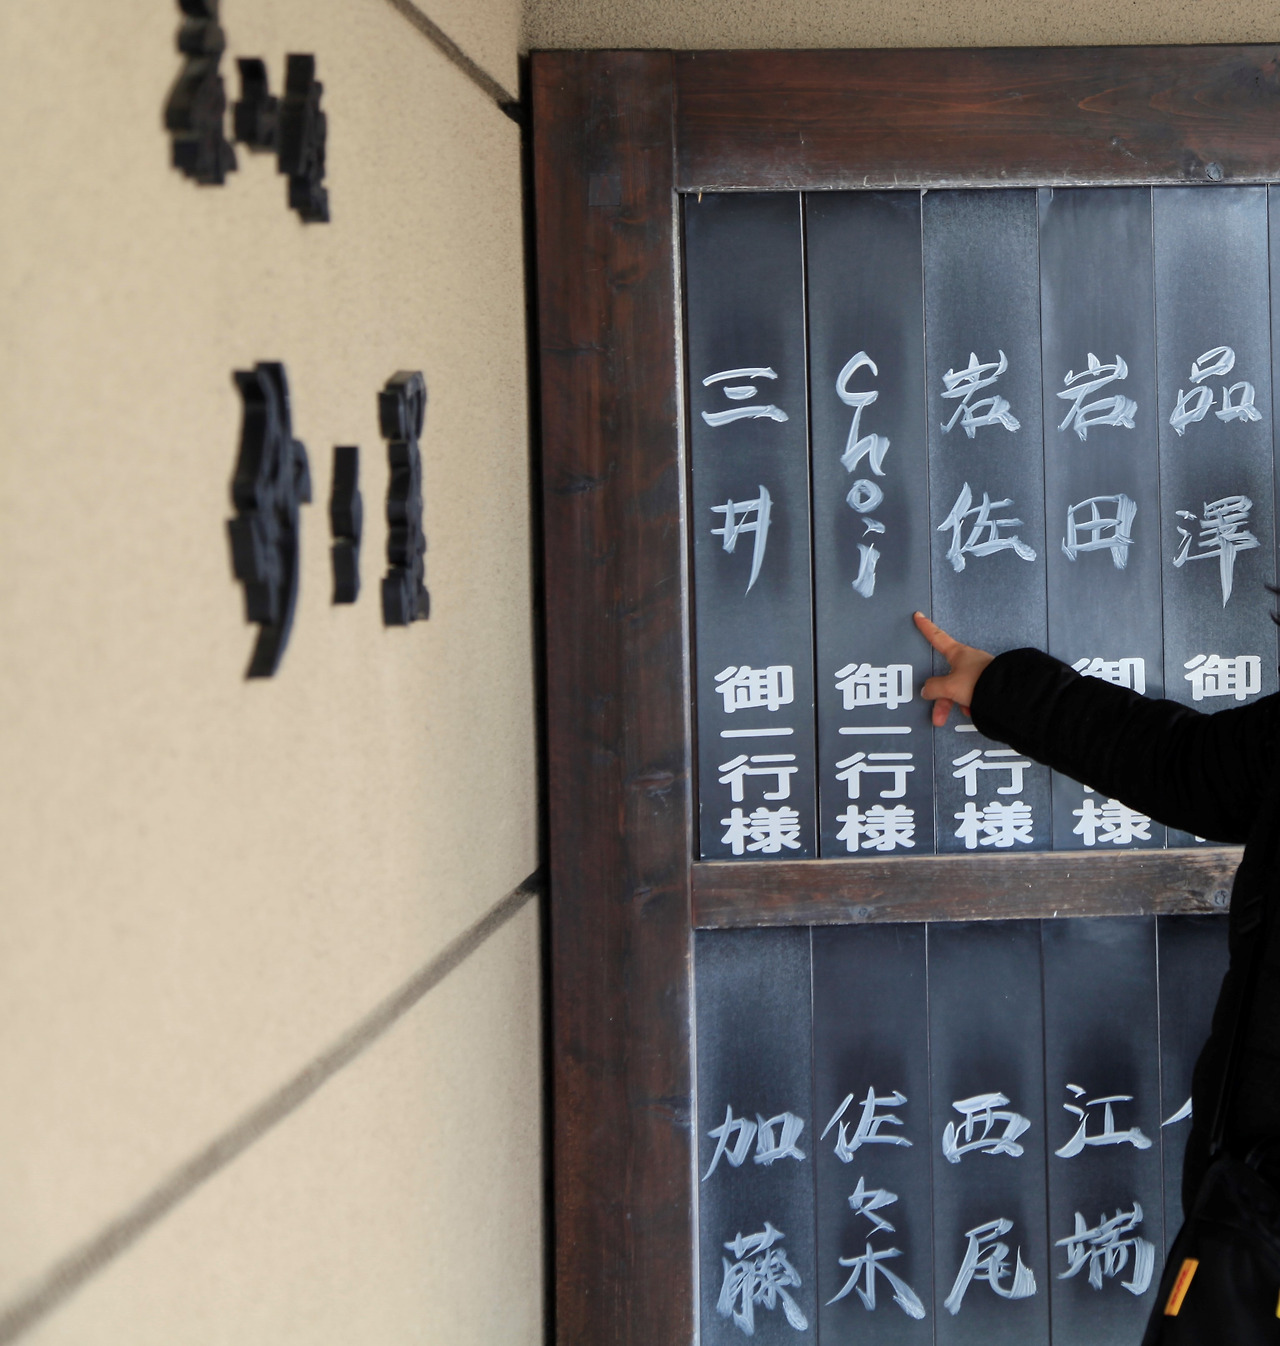 品澤 御
岩田 御 様
岩佐 行様
Choi 御一行様
三井 御一行様
江端
西尾
佐々木
加藤